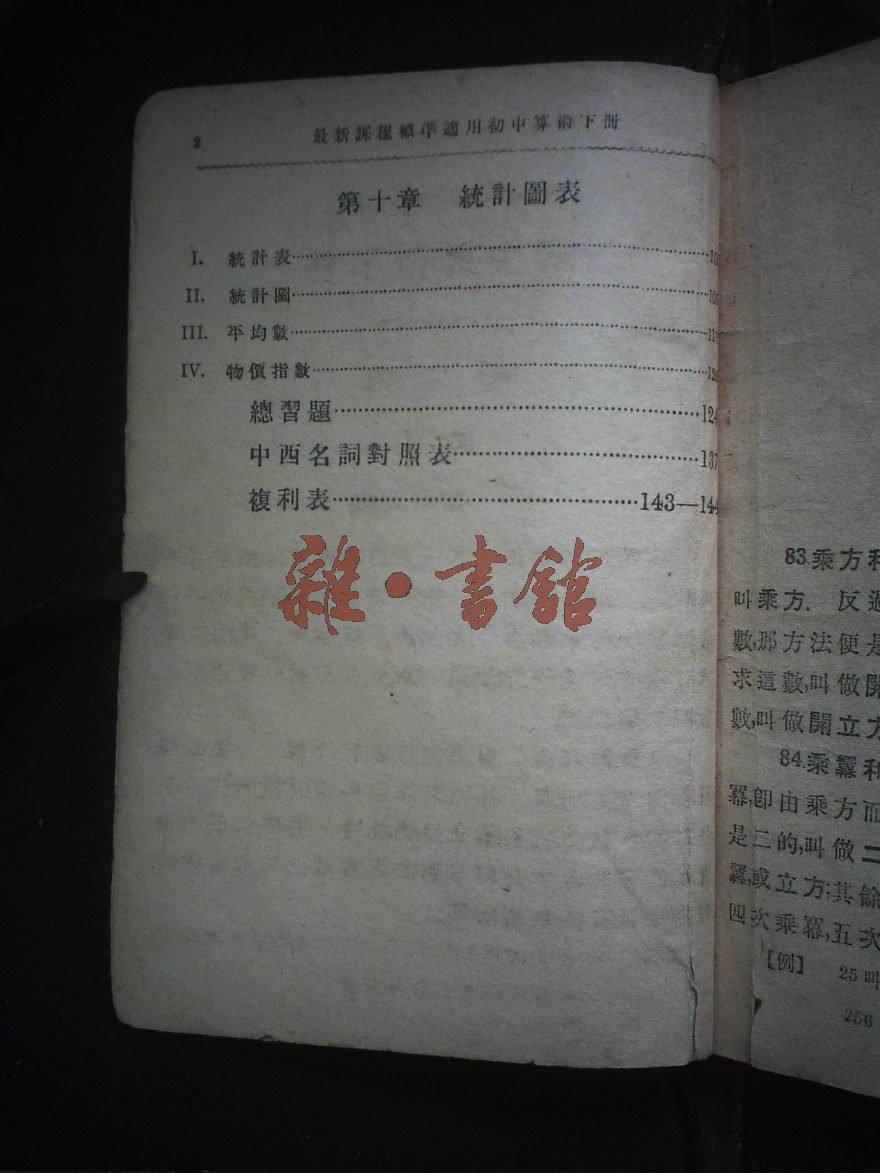 2 最新課程標準適用初中算術下冊
第十章 統計圖表
I. 統計表
II. 統計圖
III. 平均數
IV. 物價指數
總習題 124
中西名詞對照表 137
複利表 143—144
雜·書館
83.乘方和
叫乘方. 反過
數,那方法便是
求這數,叫做開
數,叫做開立方
84.乘羃和
冪,卽由乘方而
是二的,叫做二
羃,或立方;其餘
四次乘冪,五次
【例】 25 叫
256